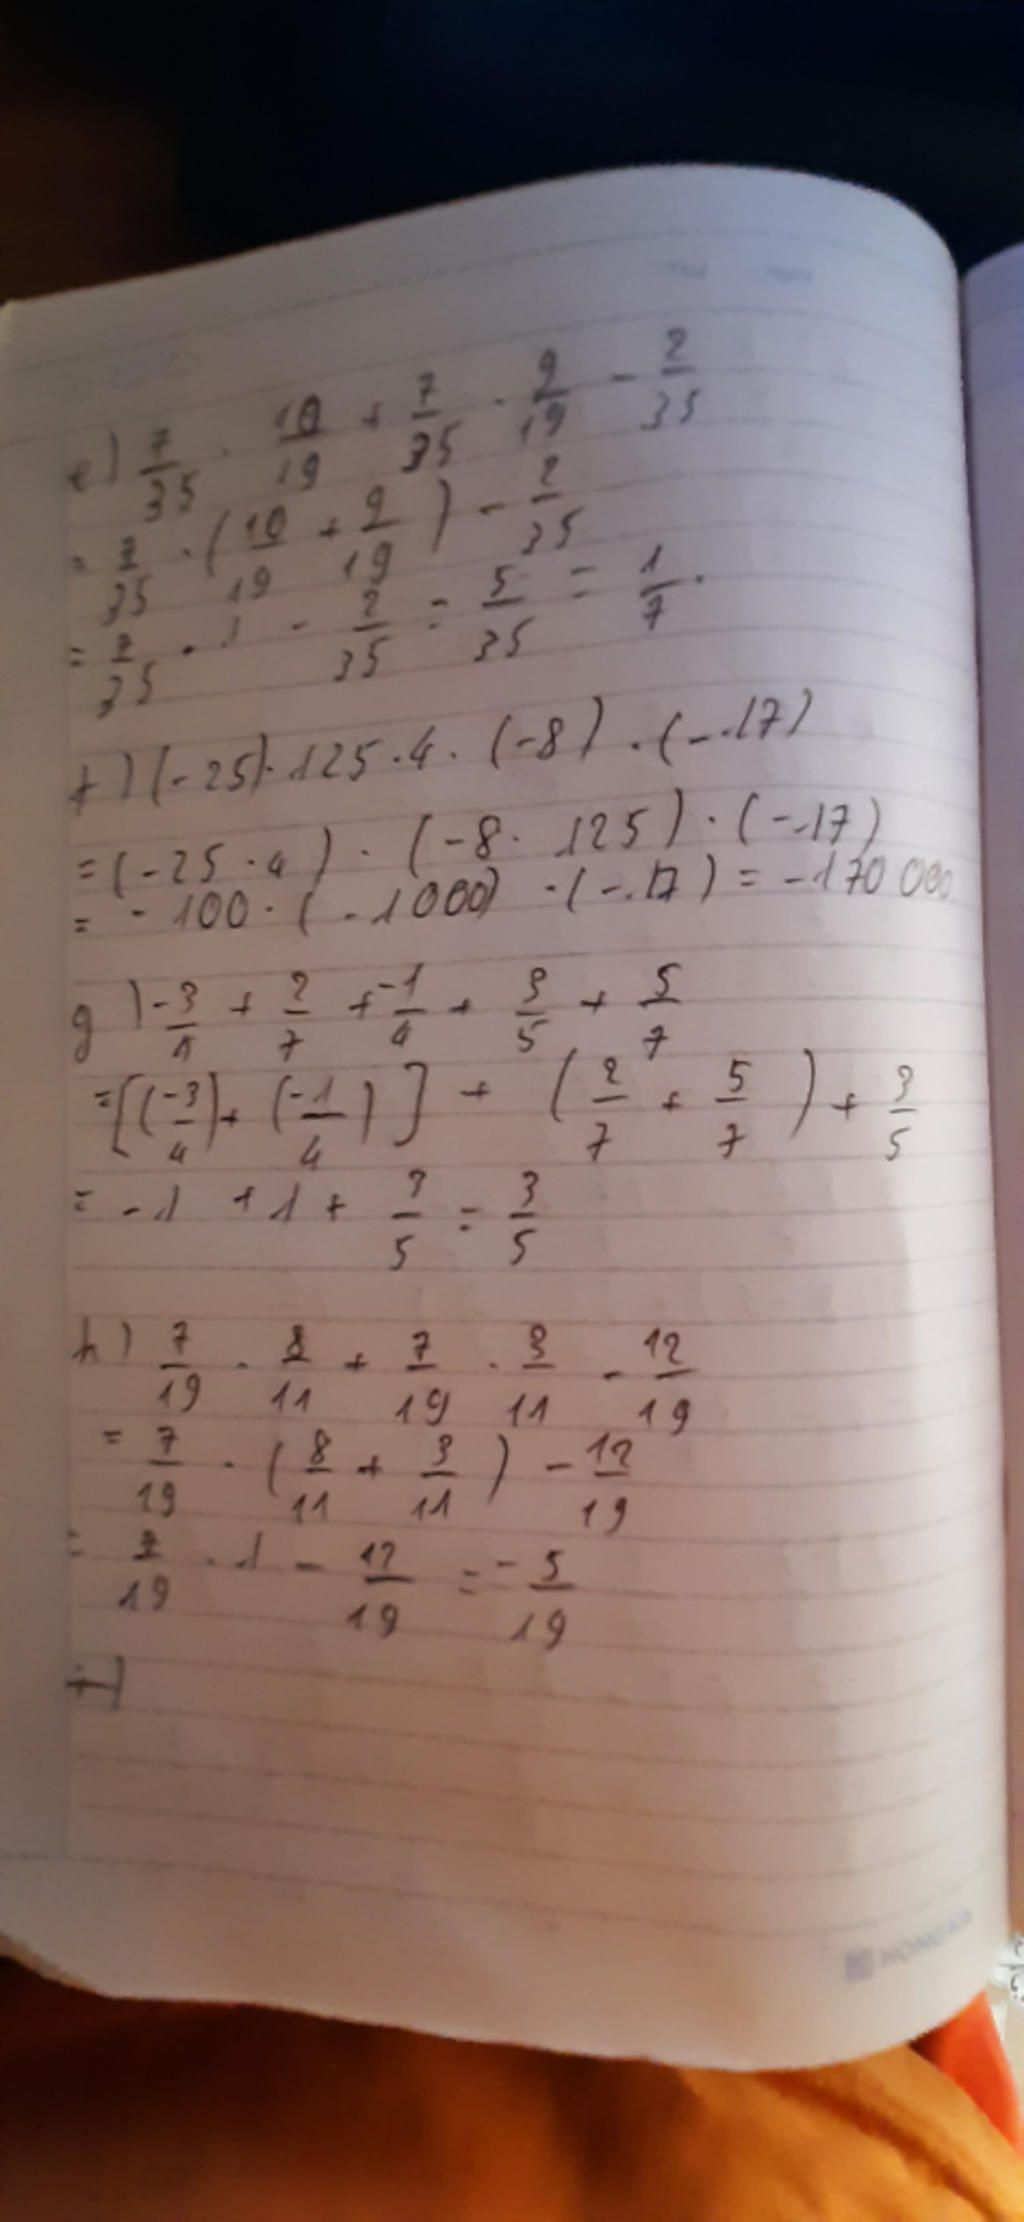 e) 7/35 . 10/19 + 7/35 . 9/19 - 2/35
= 7/35 . (10/19 + 9/19) - 2/35
= 7/35 . 1 - 2/35 = 5/35 = 1/7.
f) (-25). 125 . 4 . (-8) . (-17)
= (-25 . 4) . (-8 . 125) . (-17)
= -100 . (-1000) . (-17) = -170 000
g) -3/4 + 2/7 + -1/4 + 3/5 + 5/7
= [(-3/4) + (-1/4)] + (2/7 + 5/7) + 3/5
= -1 + 1 + 3/5 = 3/5
h) 7/19 . 8/11 + 7/19 . 3/11 - 12/19
= 7/19 . (8/11 + 3/11) - 12/19
= 7/19 . 1 - 12/19 = -5/19